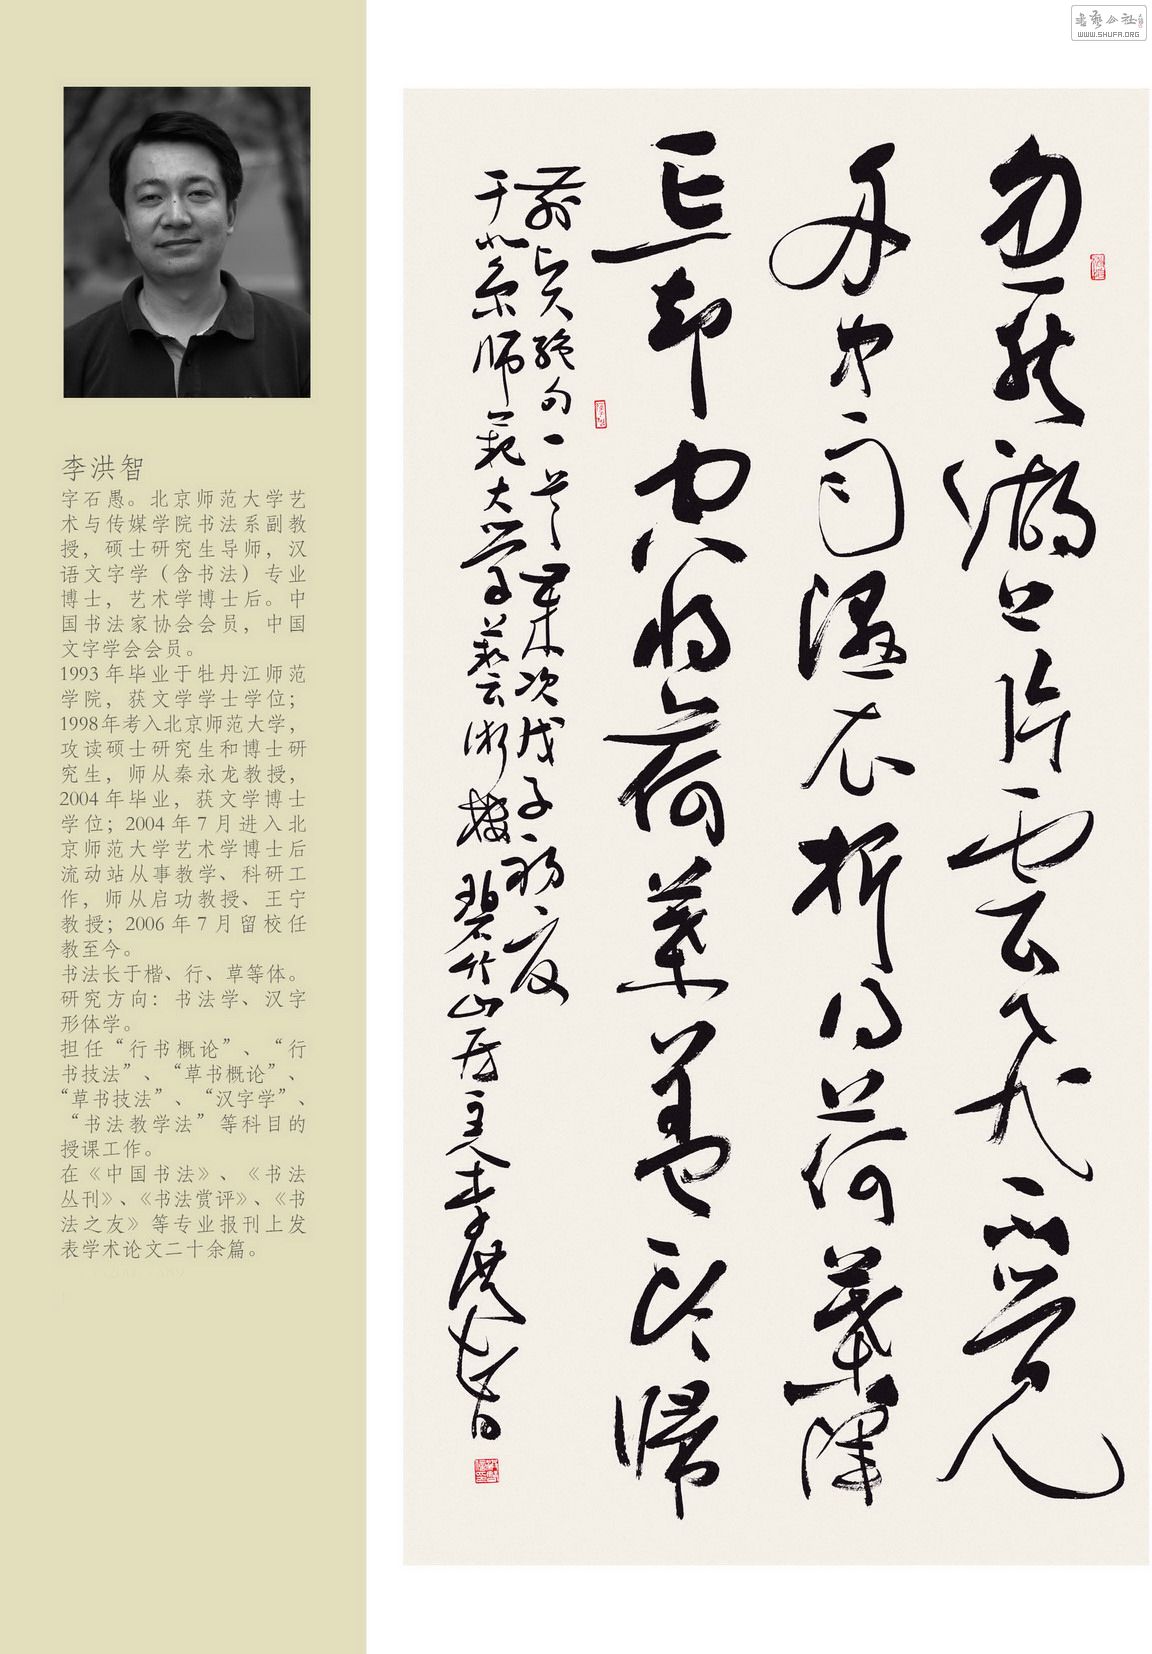 書藝公社
WWW.SHUFA.ORG
李洪智
字石愚。北京师范大学艺
术与传媒学院书法系副教
授，硕士研究生导师，汉
语文字学（含书法）专业
博士，艺术学博士后。中
国书法家协会会员，中国
文字学会会员。
1993 年毕业于牡丹江师范
学院，获文学学士学位；
1998年考入北京师范大学，
攻读硕士研究生和博士研
究生，师从秦永龙教授，
2004 年毕业，获文学博士
学位；2004 年 7 月进入北
京师范大学艺术学博士后
流动站从事教学、科研工
作，师从启功教授、王宁
教授；2006 年 7 月留校任
教至今。
书法长于楷、行、草等体。
研究方向：书法学、汉字
形体学。
担任“行书概论”、“行
书技法”、“草书概论”、
“草书技法”、“汉字学”、
“书法教学法”等科目的
授课工作。
在《中国书法》、《书法
丛刊》、《书法赏评》、《书
法之友》等专业报刊上发
表学术论文二十余篇。
忽然湖上片雲飛不覺
舟中雨濕衣折得荷渾
忘却空將荷葉蓋頭歸
前賢絕句一首歲次戊子初夏
于北京師範大學藝術樓碧竹山居主人李洪智